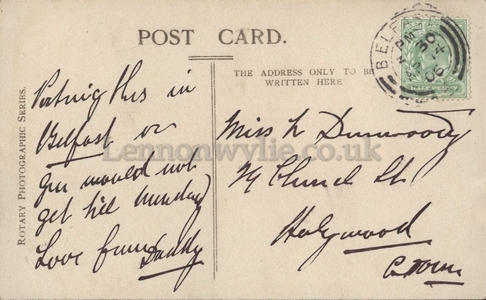 POST CARD.
THE ADDRESS ONLY TO BE
WRITTEN HERE
ROTARY PHOTOGRAPHIC SERIES.
Posting this in
Belfast or
you would not
get till Monday
Love from Daddy
Miss N Dunwoody
Church St
Holywood
Co Down
Lennonwylie.co.uk
BELFAST
PM
30
06
HALF PENNY